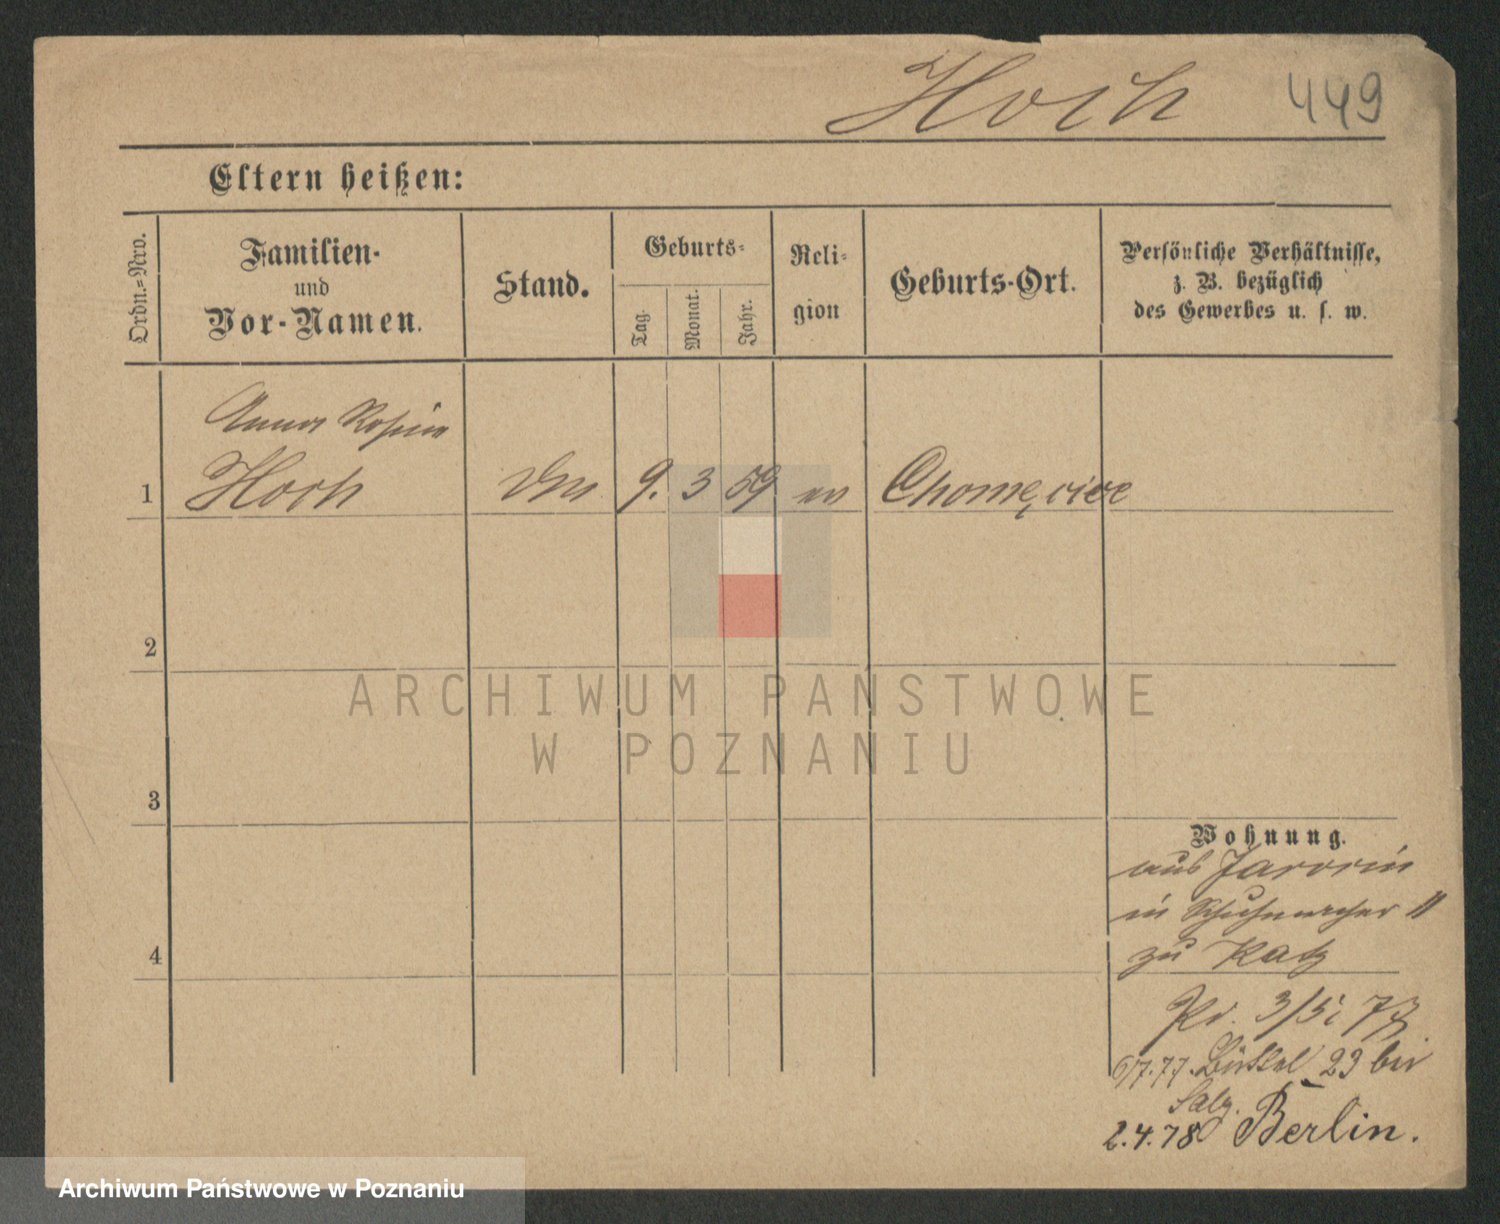 Hoch 449
Eltern heißen:
Ordn.=Nro.
Familien-
und
Vor-Namen.
Stand.
Geburts-
Tag.
Monat.
Jahr.
Reli-
gion
Geburts-Ort.
Persönliche Verhältnisse,
z. B. bezüglich
des Gewerbes u. s. w.
Anna Rosina
1 Hoch 9. 3 59 Chomęcice
2
3
4
Wohnung.
aus Jarocin
in Schuhmacher 11
zu Katz
3/5 77
7.77. Büttel 23 bei
Salz.
2.4.78 Berlin.
ARCHIWUM PAŃSTWOWE
W POZNANIU
Archiwum Państwowe w Poznaniu